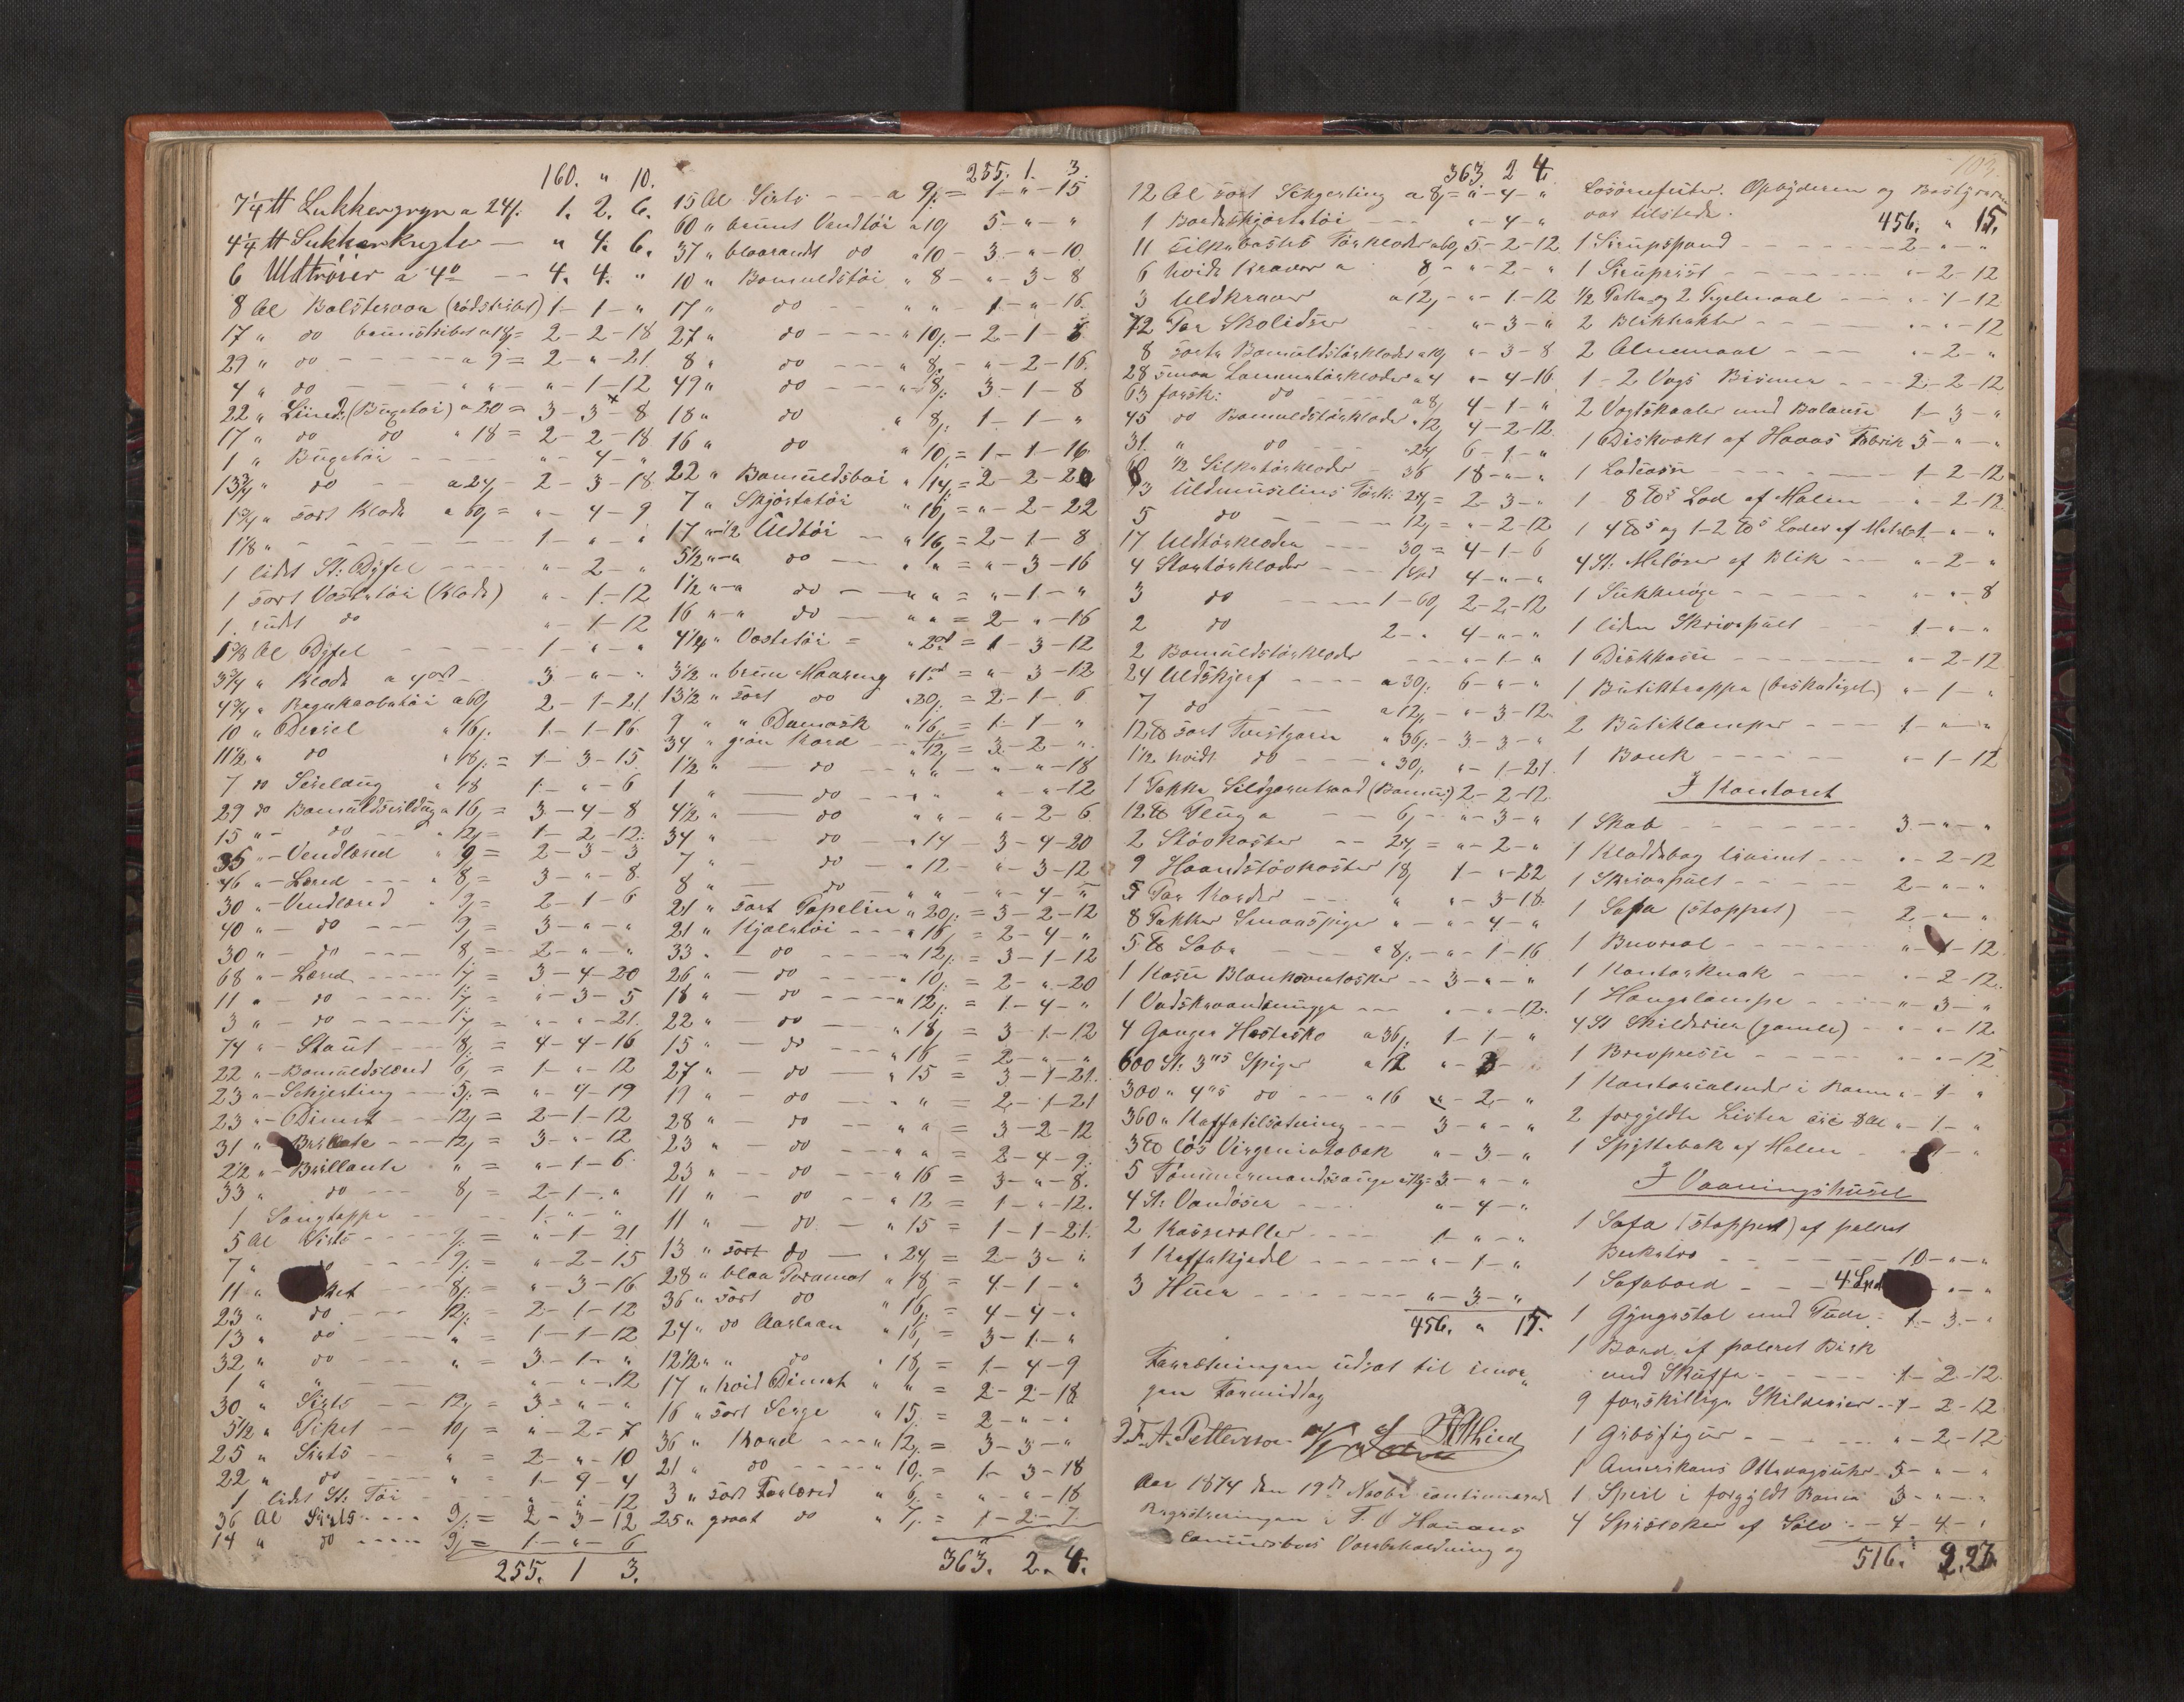 160. " 10.
7 1/4 ℔ Sukkergryn a 24/. 1. 2. 6.
4 1/4 ℔ Sukkerkugler — " 4. 6.
6 Uldtrøier a 4 — 4. 4. "
8 Al Bolstervaar (rødstribet) 1 - 1 - "
17 " do bruunstribet a 18/ = 2 - 2 - 18
29 " do a 9 = 2 - " - 21
4 " do " - 1 - 12
22 " Liined: (Bugetøi) a 20 = 3 - 3 - 8
17 " do do " 18 = 2 - 2 - 18
1 " Bugetøi " - 4 - "
13 3/4 " do a 24/ - 2 - 3 - 18
1 3/4 " sort Klæde a 60/ = " - 4 - 9
1 1/8 " 1 - " - "
1 lidet St: Dyfel " - 2 - "
1 sort Vestetøi (Klæde) " - 1 - 12
1. lidet do " - 1 - 12
1 3/8 Al Dyfel 1 - " - "
3 3/4 " Klæde a 4 ort 3 - " - "
4 3/4 " Regnkaabetøi a 60/ 2 - 1 - 21.
10 " Dreiel " 16/. 1 - 1 - 16
11 1/2 " do " 18/. = 1 - 3 - 15
7 do Seildug " 18 1 - " - 6
29 do Bomuldsseildug a 16/ = 3 - 4 - 8
15 " do " 12/ = 1 - 2 - 12
35 " - Vendlærred " 9/ = 2 - 3 - 3
46 " - Lærred " 8/ = 3 - " - 8
30 " - Vendlærred " 9/ = 2 - 1 - 6
40 " - do 9/ = 3 - " - "
30 " - do 8/ = 2 - " - "
68 " - Lærred 7/ = 3 - 4 - 20
11 " - do 7/ = " - 3 - 5
3 " - do 7/ = " - " - 21.
74 " - Stout 8/ = 4 - 4 - 16
22 " - Bomuldslærred 6/ = 1 - " - 12
23 " - Schjerting 5/. = " - 4 - 19
23 " - Dimet 12/ = 2 - 1 - 12
31 " Brillante 12/ = 3 - " - 12
2 1/2 " - Brillante " = " - 1 - 6
33 " do 8/ = 2 - 1 - "
1 Sengteppe 1 - " - "
5 Al Sirts 9/. = " - 1 - 21
7 " do 9/. = " - 2 - 15
11 " 8/. = " - 3 - 16
23 " do 12/. = 2 - 1 - 12
13 " do " = 1 - 1 - 12
32 " do " = 3 - 1 - "
1 " " " - " - 12
30 " Sirts 12/ = 3 - " - "
5 1/2 " Piket 10/ = " - 2 - 7
25 " Sirts " = 2 - " - 10
22 " do " 1 - 9 - 4
1 lidet St: Tøi " - " - 12
36 Al Sirts 9/. = 2 - 3 - 12
14 " do 9/ = 1 - " - 6
255. 1 3.
255. 1. 3.
15 Al Sirts a 9/. = 1 - " - 15
60 " bruunt Vendtøi a 10/ 5 - " - "
37 " blaarandt do " 10 - 3 - " - 10
10 " Bomuldstøi " 8 - " - 3 - 8
17 " do " " 1 - " - 16.
27 " do " 10/. - 2 - 1 - 6
8 " do " 8/. - " - 2 - 16.
49 " do " 8/. 3 - 1 - 8
18 " do " 8/. 1 - 1 - "
16 " do " 10/. = 1 - 1 - 16
22 " Bomuldsbai " 14/. = 2 - 2 - 20
7 " Skjørtetøi " 16/. = " - 2 - 22
17 " 1/2 Uldtøi " 16/. = 2 - 1 - 8
5 1/2 " - " do " " = " - 3 - 16
1 1/2 " - " do " " = " - 1 - "
16 " - " do " " = 2 - " - 16
4 1/4 " Vestetøi = " 2 ort = 1 - 3 - 12
3 1/2 " bruun Moareng " 1 ort = " - 3 - 12
13 1/2 " sort do " 20/. = 2 - 1 - 6
9 " " Damask " 16/. = 1 - 1 - "
34 " grøn Kord " 12/. = 3 - 2 - "
1 1/2 " — do " " - " - " - 18
1 " — do " " " - " - 12
4 1/2 " — do " " - " - 2 - 6.
34 " — do " 14 3 - 4 - 20
7 " — do " 12 - " - 3 - 12
8 " — do " " - " - 4 - "
21 " sort Popelin " 20/. = 3 - 2 - 12
21 " Kjoletøi " 16/ = 2 - 4 - "
33 " - do " 12/. = 3 - 1 - 12
26 " — do " 10/. = 2 - " - 20
18 " — do " 12/. = 1 - 4 - "
22 " — do " 18/. = 3 - 1 - 12
15 " — do " 16 = 2 - " - "
27 " — do " 15 = 3 - 1 - 21.
19 " - do " " = 2 - 1 - 21
28 " — do " " = 3 - 2 - 12
23 " — do " " = 2 - 4 - 9.
23 " — do " 16 = 3 - " - 8.
11 " — do " 12 = 1 - " - 12.
11 " — do " 15 = 1 - 1 - 21.
13 " sort do " 24 = 2 - 3 - "
28 " blaa Paramat " 18/ = 4 - 1 - "
36 " sort do " 16/. = 4 - 4 - "
24 " do Aarlean " 16/. = 3 - 1 - "
12 1/2 " " do " 18/ = 1 - 4 - 9
17 " hvid Dimet " " = 2 - 2 - 18
16 " sort Serge " 15. = 2 - " - "
36 " Koard " 12/. = 3 - 3 - "
21 " do " 10/. = 1 - 3 - 18
3 " sort Foerlærred " 6/. = " - " - 18
25 " graat do " 7/. = 1 - 2 - 7
363. 2. 4.
363 2 4
12 Al sort Schjerting a 8/ = " - 4 - "
1 Bordeskjørtetøi " - 4 - "
11 Silkebastes Tørklæder a 60/ 5 - 2 - 12
6 hvide Kraver a 8 - " - 2 - "
3 Uldkraver a 12/ - " - 1 - 12
72 Par Skolidser " - 3 - "
8 sorte Bomuldstørklæder a 10/ " - 3 - 8
28 smaa Lommetørklæder a 4 " - 4 - 16
63 forsk: do a 8/ 4 - 1 - "
45 do Bomuldstørklæder " 12/ 4 - 2 - 12
31. " do " 24/ 6 - 1 - "
60 1/2 Silketørklæder 36 18 - " - "
13 Uldmuselins Tørk: 24/ = 2 - 3 - "
5 do 12/ = " - 2 - 12
17 Uldtørklæder 30/ = 4 - 1 - 6
4 Stortørklæder 1 Spd 4 - " - "
3 do 1 - 60/ 2 - 2 - 12
2 do 2 - " 4 - " - "
2 Bomuldstørklæder " - 1 - "
24 Uldskjerf a 30/. 6 - " - "
7 do a 12/. - " - 3 - 12.
12 ℔ sort Tvistgarn " 36/. - 3 - 3 - "
1 1/2 hvidt do " 30/. " - 1 - 21
1 Pakke Sildgarntraad (Bomul) 2 - 2 - 12
12 ℔ Pleug a 6/ - " - 3 - "
2 Støvkoster 24/ = " - 2 - "
9 Haandstøvkoster 18/ 1 - " - 22
5 Par Karder " " - 3 - 18
8 Pakker Smaaspiger " - " - 4 - "
5 ℔ Sæbe a 8/. - " - 1 - 16
1 Kasse Blanksværtæsker 3 - " - "
1 Vadskevandsmugge " - " - 12.
4 Ganger Hestesko a 36/. 1 - 1 - "
600 St. 3"s Spiger a 12 " - 3 -
300 " 4"s do " 16 " - 2 - "
360 " Kaffetilsætning 3 - " - "
3 ℔ løs Virginiatobak " - 3 - "
5 Tømmermandssauge 3 - " - "
4 St: Vandøser " - 4 - "
2 Kasseroller 1 - " - "
1 Kaffekjedel " - 1 - "
3 Huer " - 3 - "
456. " 15.
Forretningen udsat til imor-
gen Formiddag
P. F. A. Pettersen
Aar 1874 den 19de Novbr continuerede
Registreringen i F. O Hansens
Concursboes Varebeholdning og
103
Løsøreeffecter. Opbyderen og Bestyreren
var tilstede. 456. " 15.
1 Sirupspand 2 - " - "
1 Siruprist " - 2 - 12
1/2 Potte og 2 Pegelmaal " - 1 - 12
2 Bliktrakter " - " - 12
2 Alnemaal " - 2 - "
1 - 2 Vogs Bismer 2 - 2 - 12
2 Vegtskaaler med Balanse 1 - 3 - "
1 Diskvekt af Haaas Fabrik 5 - " - "
1 Lodcasse 1 - 2 - 12
1 8 ℔s Lod af Malm " - 2 - 12
1 4 ℔s og 1 - 2 ℔s Lodder af Metal 1 - " - "
4 St: Meløser af Blik " - 2 - "
1 Sukkerøxe " - " - 8
1 liden Skrivepult 1 - " - "
1 Diskkasse " - 2 - 12
1 Butiktrappe (beskadiget) " - 1 - "
2 Butiklamper 1 - " - "
1 Bænk " - 1 - 12
I Kontoret
1 Skab 3 - " - "
1 Kladdebog liniert " - 2 - 12
1 Skrivepult 2 - " - "
1 Sofa (stoppet) 2 - " - "
1 Brevreol " - 1 - 12
1 Kontorkrak " - 2 - 12.
1 Hængelampe " - 3 - "
4 St Skilderier (gamle) " - " - 12
1 Brevpresse " - " - 12
1 Kontorcalender i Ramme " - 1 - "
2 forgyldte Lister 8 Al " - 1 - "
1 Spyttebak af Malm " - 1 - "
I Vaaningshuset
1 Sofa (stoppet) af poleret
Birketræ 10 - " - "
1 Sofabord 4 Spd " - "
1 Gyngestol med Pude 1 - 3 - "
1 Bord af poleret Birk
med Skuffe 1 - 2 - 12
9 forskjellige Skilderier 1 - 2 - 12
1 Gibsfigur " - 2 - 12
1 Amerikans Ottedagsuhr 5 - " - "
1 Speil i forgyldt Ramme 3 - " - "
4 Spiseskeer af Sølv 4 - 4 - "
516. 2. 23.